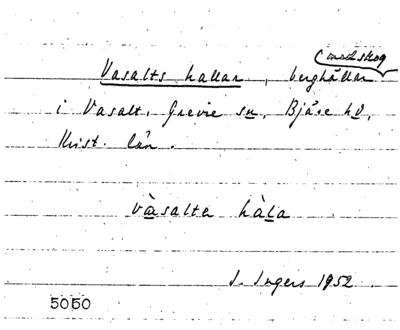 (med skog
Vasalts hallar, berghällar
i Vasalt, Grevie sn, Bjäre hd,
Krist. län.
vàsalta hàla
I. Ingers 1952
5050